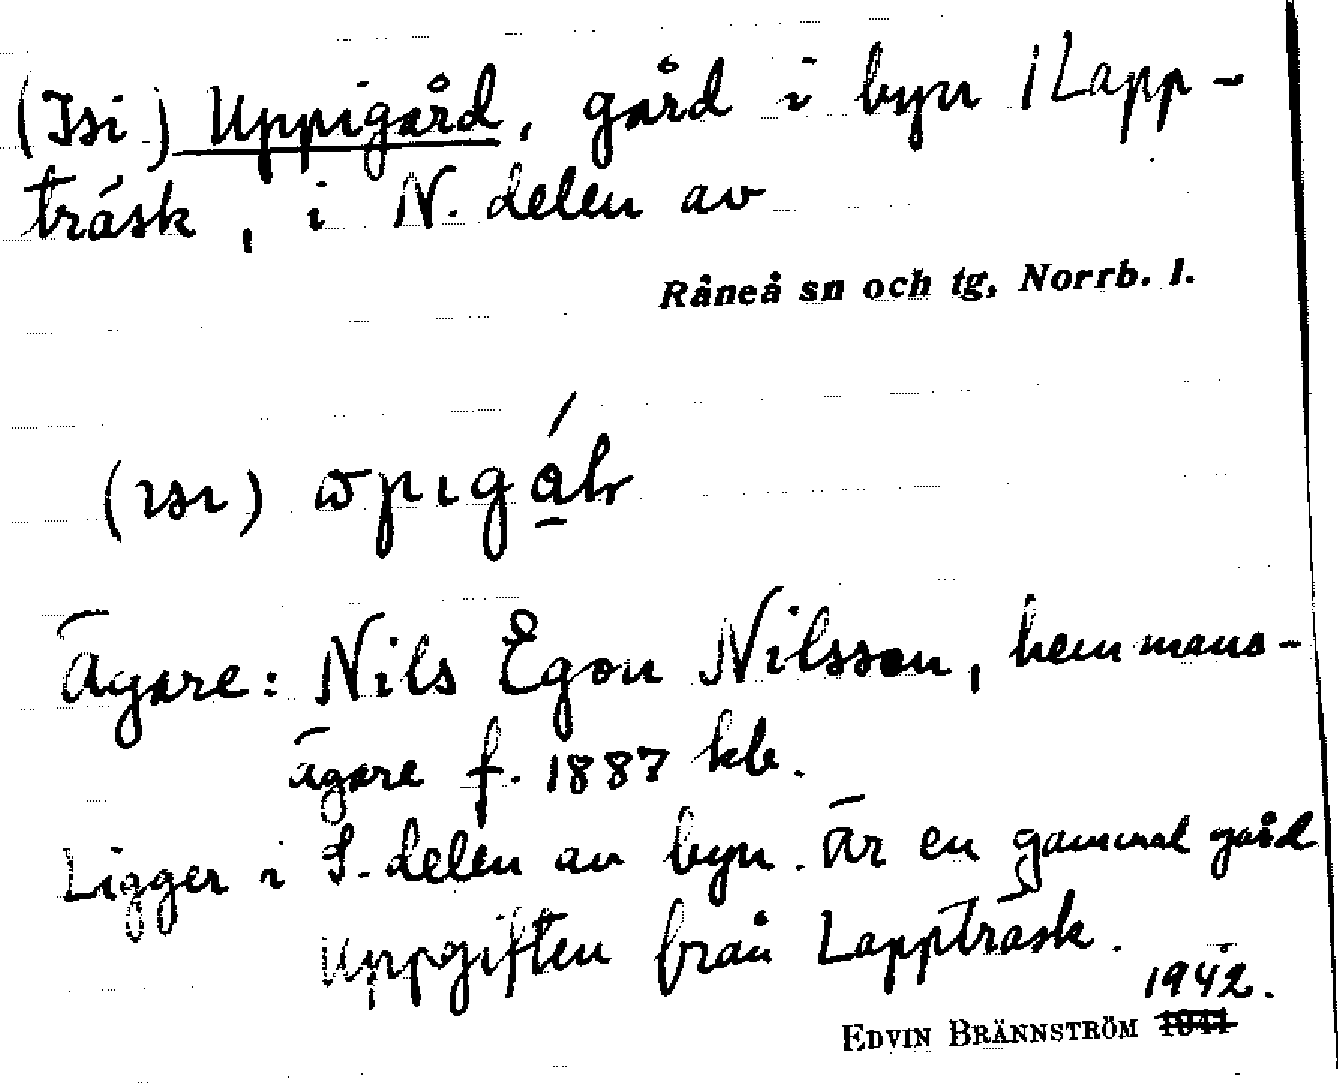 (Isi) Uppigård, gård i byn Lapp-
träsk, i N. delen av
Råneå sn och tg, Norrb. l.
(ısı)
Ägare: Nils Egon Nilsson, hemmans-
ägare f. 1887 hb.
Ligger i S. delen av byn. Är en gammal gård
Uppgiften från Lappträsk.
1942.
EDVIN BRÄNNSTRÖM 1941